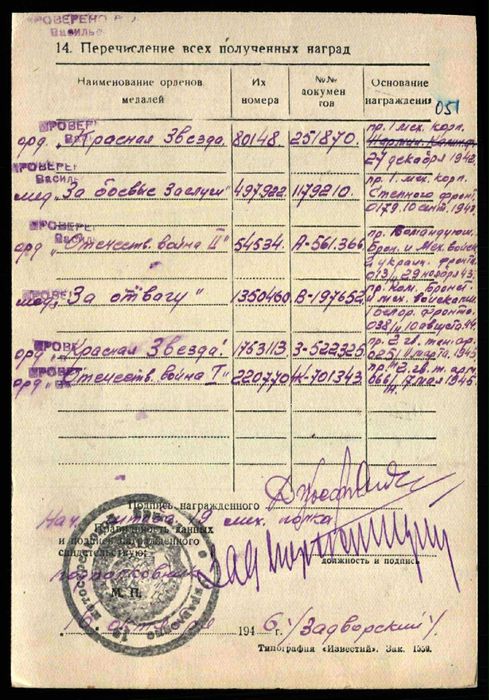 ПРОВЕРЕНО
Василье
14. Перечисление всех полученных наград
Наименование орденов
медалей
Их
номера
№№
докумен
тов
Основание
награждения
051
ПРОВЕРЕ
орд. „Красная Звезда." 80148. 251870. пр. 1 мех. корп.
24 декабря 1942
ПРОВЕРЕН
Василь
мед. „За боевые заслуги" 497922. 1179210. пр. 1. мех. корп.
Степного фронт.
017 9. 10 сент. 194
ПРОВЕРЕ
Василь
орд „Отечеств. война II" 54534. А-561.366 пр. Командующ.
Брон. и Мех. войск
2 украин. фронта
013/ 29 ноября 43
ПРОВЕ
мед. „За отвагу" 1350460. В-197652. пр. Ком. Бронет.
и мех. войсками
1 Белор. фронта
038/ 10 августа 44
ПРОВЕ
орд. „Красная Звезда! 1763113. З-522325. пр. 2 гв. тен. ар.
025/ 11 марта. 1945
ПРОВЕ
орд „Отечеств. война I" 220770 Ж-701343. пр. 2 гв. т. арм.
066/ 17 мая 1945
Подпись награжденного
Нач. штаба 19 мех. полка
Правильность данных
и подписи награжденного
свидетельствую:
подполковник
должность и подпись
М. П.
„16" октября 1946 г. /Задворский/.
Типография «Известий». Зак. 1550.